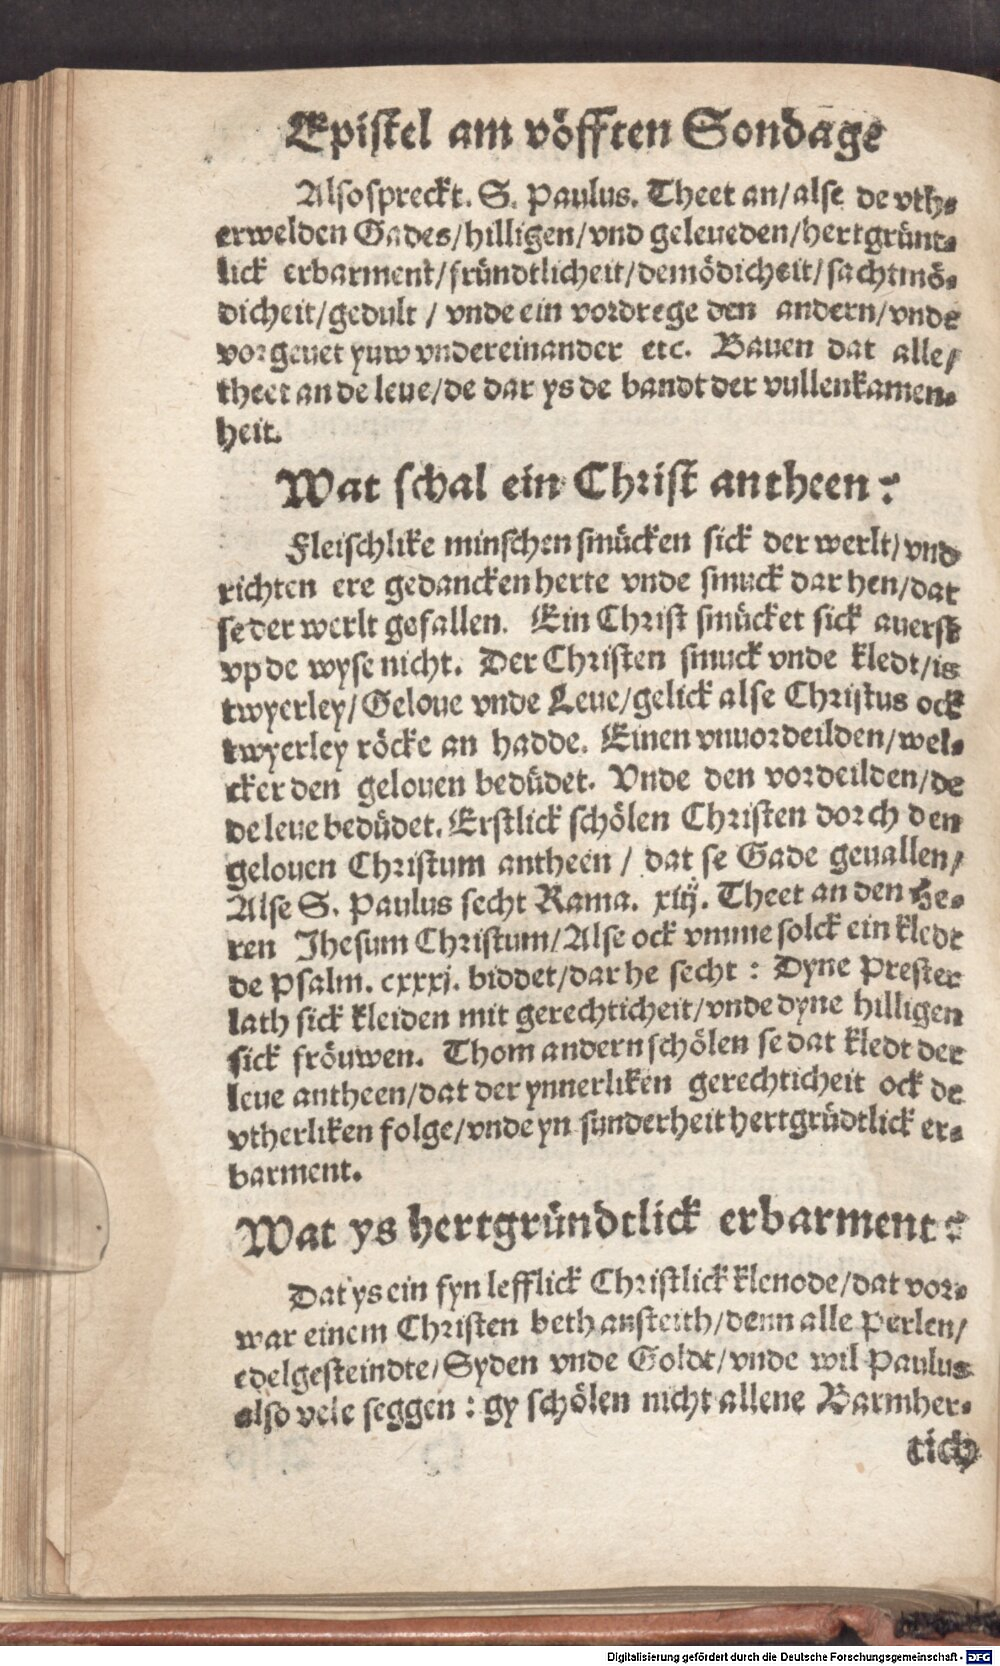 Epistel am vöfften Sondage
Also spreckt. S. Paulus. Theet an/alse de vth-
erwelden Gades/hilligen/vnd geleueden/hertgrünt-
lick erbarment/fründtlicheit/demödicheit/sachtmö-
dicheit/gedult / vnde ein vordrege den andern/vnde
vorgeuet yuw vndereinander etc. Bauen dat alle/
theet an de leue/de dar ys de bandt der vullenkamen-
heit.
Wat schal ein Christ antheen?
Fleischlike minschen smücken sick der werlt/vnd
richten ere gedancken herte vnde smuck dar hen/dat
se der werlt gefallen. Ein Christ smücket sick auerst
vp de wyse nicht. Der Christen smuck vnde kledt/is
twyerley/Geloue vnde Leue/gelick alse Christus ock
twyerley röcke an hadde. Einen vnuordeilden/wel-
cker den gelouen bedüdet. Vnde den vordeilden/de
de leue bedüdet. Erstlick schölen Christen dorch den
gelouen Christum antheen / dat se Gade geuallen/
Alse S. Paulus secht Roma. xiij. Theet an den He-
ren Jhesum Christum/Alse ock vmme solck ein kledt
de Psalm. cxxxj. biddet/dar he secht : Dyne Prester
lath sick kleiden mit gerechticheit/vnde dyne hilligen
sick fröuwen. Thom andern schölen se dat kledt der
leue antheen/dat der ynnerliken gerechticheit ock de
vtherliken folge/vnde yn sunderheit hertgrüdtlick er-
barment.
Wat ys hertgründtlick erbarment?
Dat ys ein fyn lefflick Christlick klenode/dat vor-
war einem Christen beth ansteith/denn alle Perlen/
edelgesteindte/Syden vnde Goldt/vnde wil Paulus
also vele seggen : gy schölen nicht allene Barmher-
tich
Digitalisierung gefördert durch die Deutsche Forschungsgemeinschaft - DFG